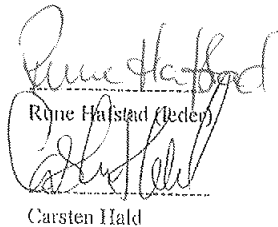 Rune Hafstad
Rune Hafstad (leder)
Carsten Hald
Carsten Hald